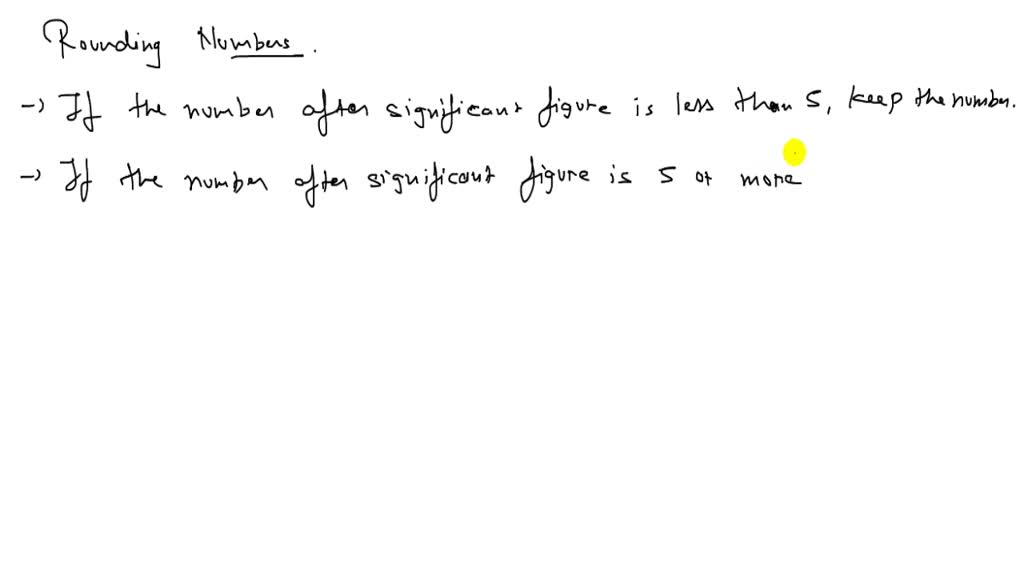 Rounding Numbers.
→ If the number after significant figure is less than 5, keep the number.
→ If the number after significant figure is 5 or more